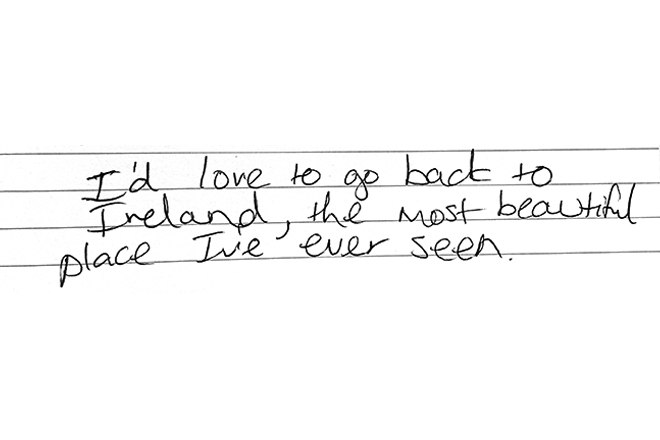 I'd love to go back to
Ireland, the most beautiful
place I've ever seen.